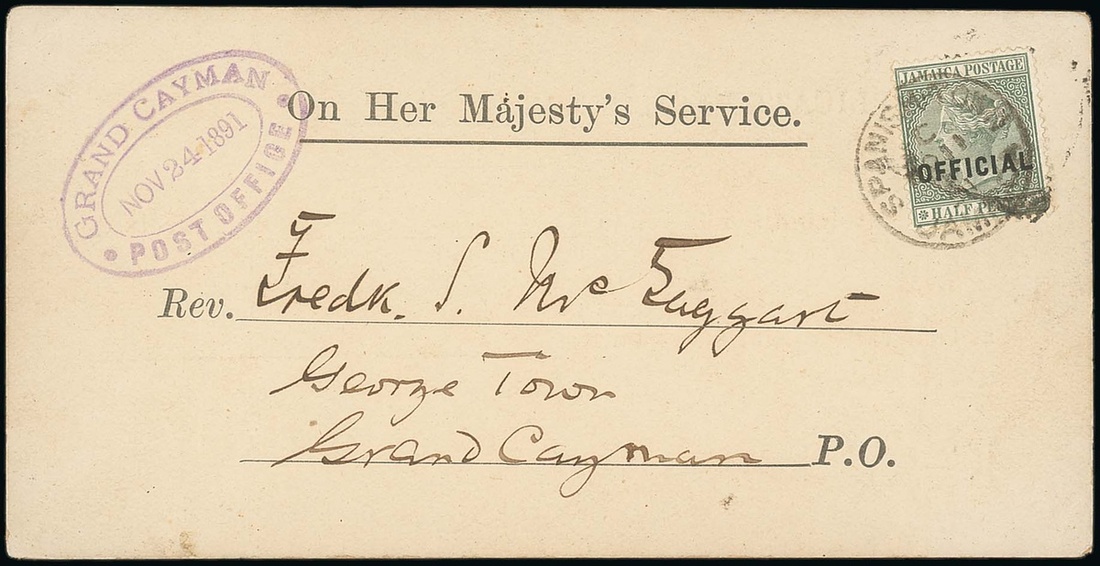 GRAND CAYMAN
NOV 24 1891
POST OFFICE
On Her Majesty's Service.
JAMAICA POSTAGE
OFFICIAL
HALF
Rev. Fredk. S. McTaggart
George Town
Grand Cayman P.O.